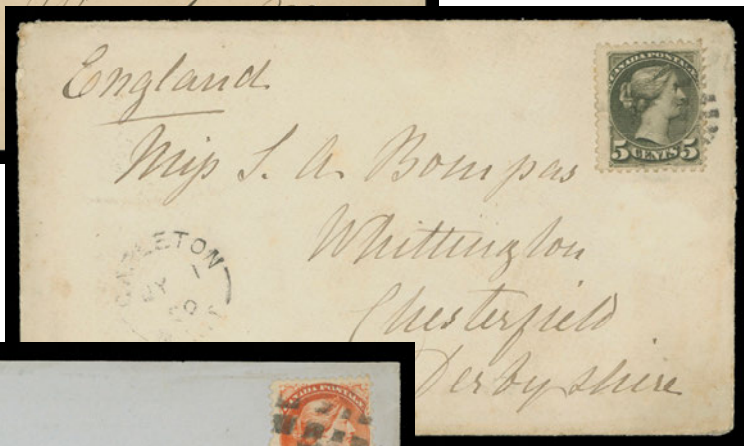 England
CANADA POSTAGE
5 CENTS 5
Miss S. A. Bompas
Whittington
Chesterfield
Derbyshire
CANADA POSTAGE